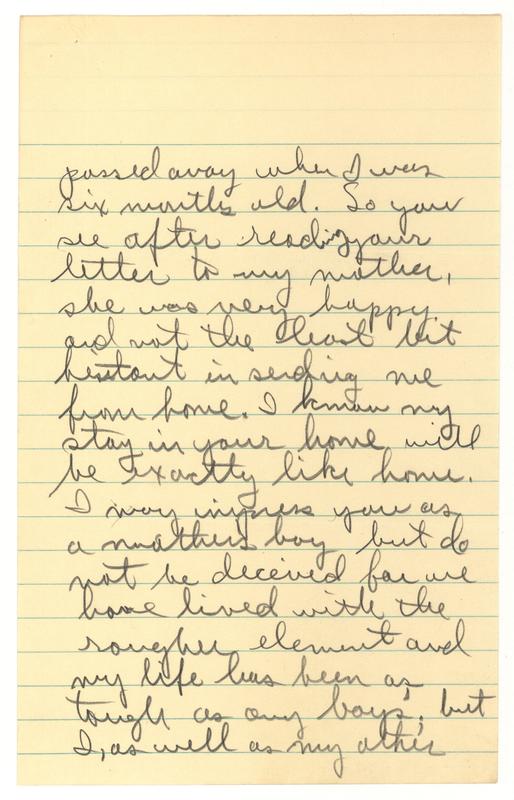 passed away when I was
six months old. So you
see after reading your
letter to my mother,
she was very happy
and not the least bit
hesitant in sending me
from home. I know my
stay in your home will
be exactly like home.
I may impress you as
a mother's boy but do
not be deceived for we
have lived with the
rougher element and
my life has been as
tough as any boys', but
I, as well as my other